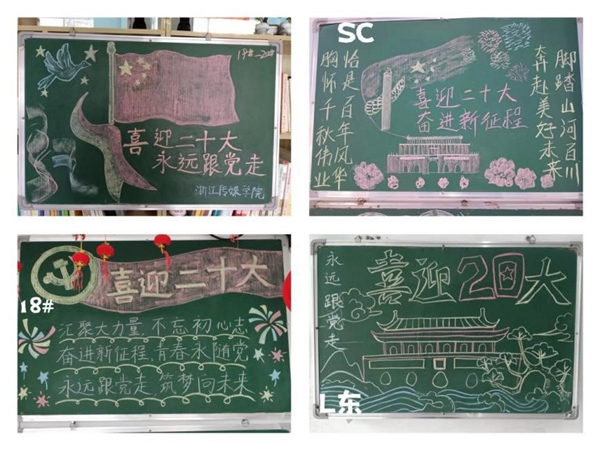 喜迎二十大
永远跟党走
浙江传媒学院
SC
胸怀千秋伟业
恰是百年风华
喜迎二十大
奋进新征程
奔赴美好未来
脚踏山河百川
喜迎二十大
18#
江聚大力量 不忘初心志
奋进新征程 青春永随党
永远跟党走 筑梦向未来
永远跟党走
喜迎20大
L东